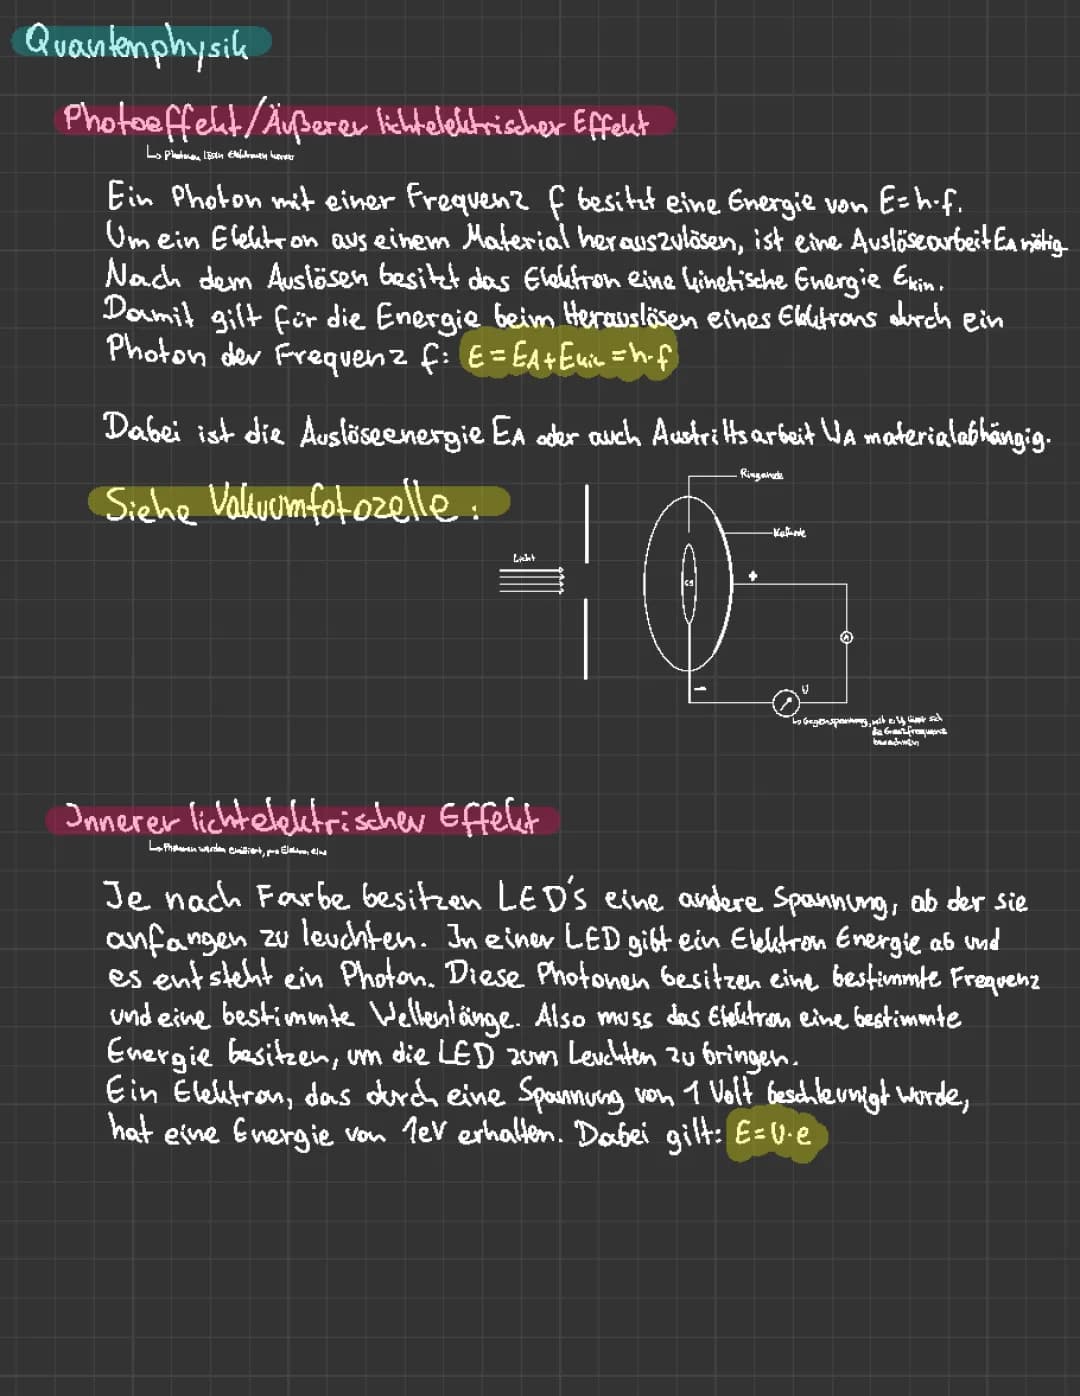 Quantenphysik
Photoeffekt/Äußerer lichtelektrischer Effekt
↳ Photonen lösen Elektronen heraus
Ein Photon mit einer Frequenz f besitzt eine Energie von E=h·f.
Um ein Elektron aus einem Material herauszulösen, ist eine Auslösearbeit EA nötig
Nach dem Auslösen besitzt das Elektron eine kinetische Energie Ekin.
Damit gilt für die Energie beim Herauslösen eines Elektrons durch ein
Photon der Frequenz f: E=EA+Ekin=h·f
Dabei ist die Auslöseenergie EA oder auch Austrittsarbeit WA materialabhängig.
Siehe Vakuumfotozelle:
Ringanode
Kathode
Licht
Cs
+
A
-
U
↳ Gegenspannung, mit lässt sich
die Grenzfrequenz
berechnen
Innerer lichtelektrischer Effekt
↳ Photonen werden emittiert, pro Elektron eins
Je nach Farbe besitzen LED's eine andere Spannung, ab der sie
anfangen zu leuchten. In einer LED gibt ein Elektron Energie ab und
es entsteht ein Photon. Diese Photonen besitzen eine bestimmte Frequenz
und eine bestimmte Wellenlänge. Also muss das Elektron eine bestimmte
Energie besitzen, um die LED zum Leuchten zu bringen.
Ein Elektron, das durch eine Spannung von 1 Volt beschleunigt wurde,
hat eine Energie von 1eV erhalten. Dabei gilt: E=U·e